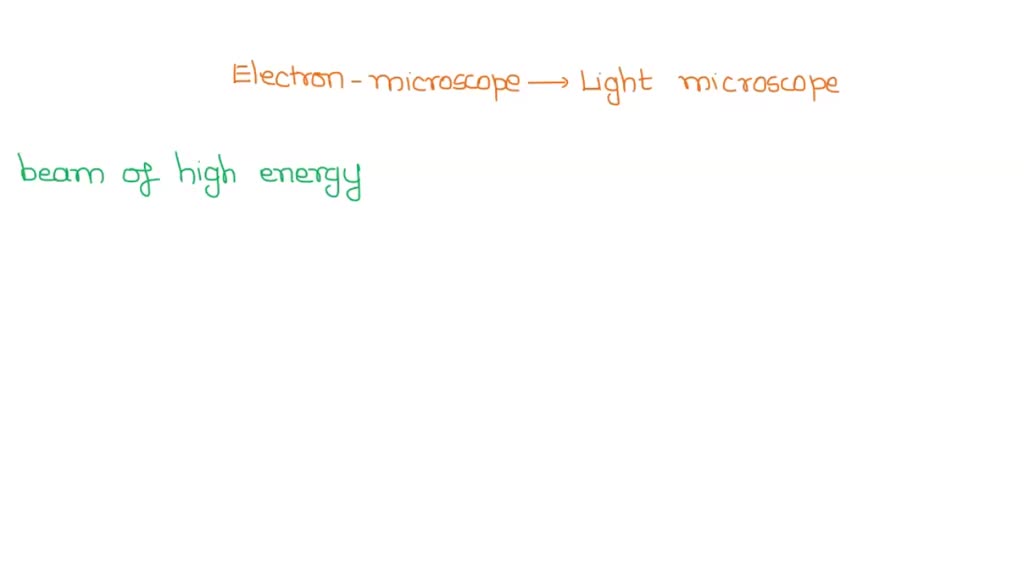 Electron-microscope → Light microscope
beam of high energy